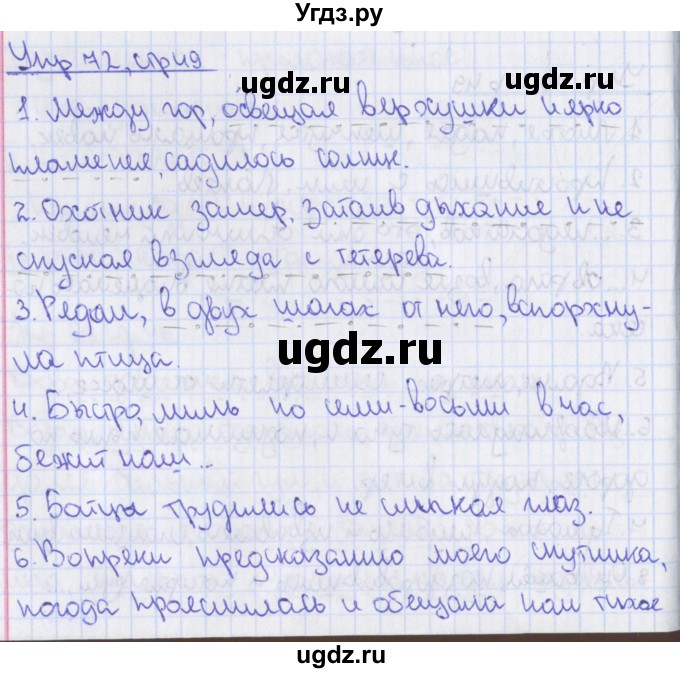 Угдз.ру
Упр 72, стр 49
ugdz.ru
1. Между гор, освещая верхушки и ярко
пламенея, садилось солнце.
ugdz.ru
2. Охотник замер, затаив дыхание и не
спуская взгляда с тетерева.
3. Рядом, в двух шагах от него, вспорхну-
ла птица.
ugdz.ru
4. Быстро, миль по семи-восьми в час,
бежит наш...
5. Бойцы трудились не смыкая глаз.
ugdz.ru
6. Вопреки предсказанию моего спутника,
погода прояснилась и обещала нам тихое
ugdz.ru